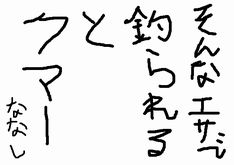 そんなエサで
釣られる
と
クマー
ななし